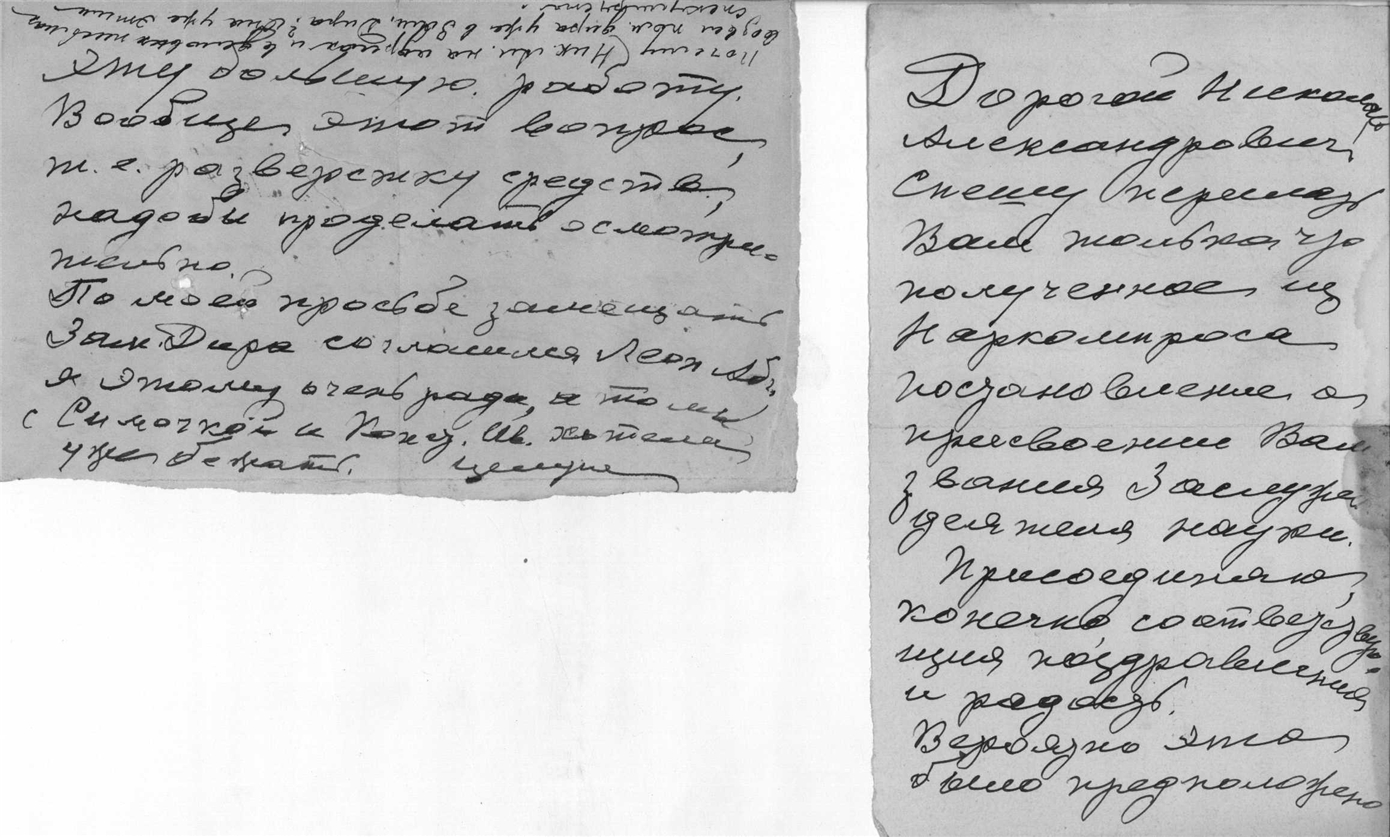 эту большую работу.
Вообще, этот вопрос,
т. е. разверстку средств,
надобы проделать осмотри-
тельно.
По моей просьбе замещать
Зам. Дира согласился Леон Абг.
я этому очень рада, а то мы
с Симочкой и Конст. Ив. хотели
уже бежать. целую
Дорогой Николай
Александрович,
Спешу переслать
Вам только что
полученное из
Наркомпроса
постановление о
присвоении Вам
звания Заслужен.
деятеля науки.
Присоединяю,
конечно соответствую-
щия поздравления
и радость.
Вероятно это
было предположено